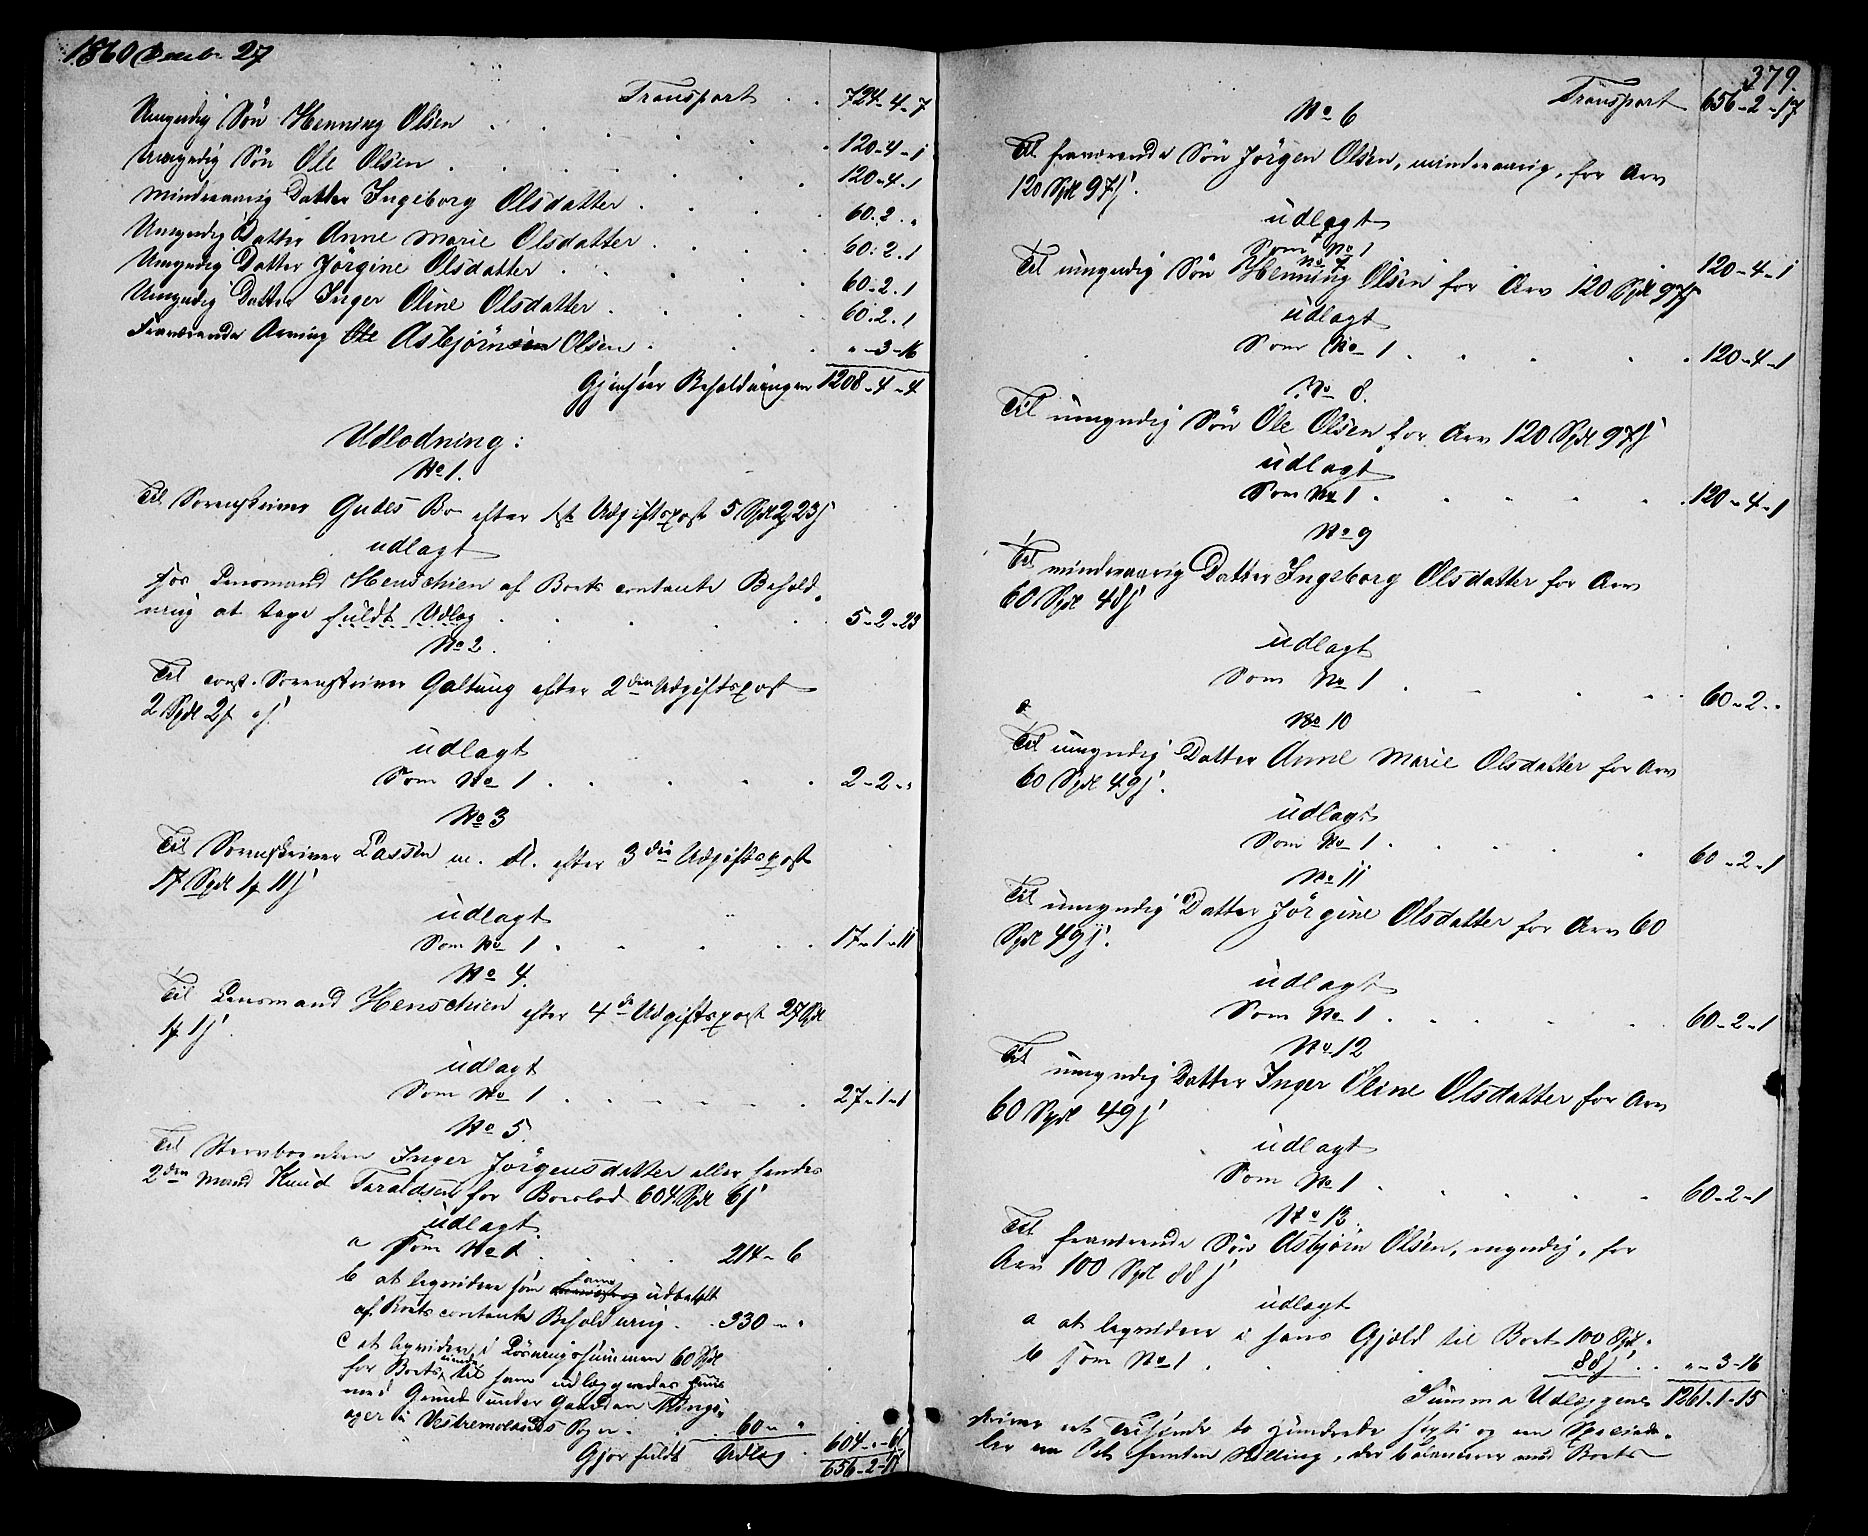 1860 Decebr 27
Transport . . 724-4-7
Umyndig Søn Henning Olsen . . . . . 120-4-1
Umyndig Søn Ole Olsen . . . . . 120-4-1
Mindreaarig Datter Ingeborg Olsdatter . . . 60.2.„
Umyndig Datter Anne Marie Olsdatter . . . 60.2.1
Umyndig Datter Jørgine Olsdatter . . . 60.2.1
Umyndig Datter Inger Oline Olsdatter . . . 60.2.1
Fraværende Arving Ole Asbjørnsen Olsen . . . „-3-16
Gjenfaaer Beholdningen 1208-4-4
Udlodning:
No 1.
Til Sorenskriver Gudes Bo efter 1st Udgiftspost 5 Spd 2 23 s
udlagt
Hos Lensmand Henschien af Boets contante Behold-
ning at tage fuldt Udlæg . . . . . 5-2-23
No 2.
Til const. Sorenskriver Galtung efter 2den Udgiftspost
2 Spd 2 s
udlagt
Som No 1 . . . . . 2-2-„
No 3
Til Sorenskriver Lassen m. fl. efter 3die Udgiftspost
17 Spd 1 11 s
udlagt
Som No 1 . . . . . 17-1-11
No 4.
Til Lensmand Henschien efter 4de Udgiftspost 27 Spd
1 1 s
udlagt
Som No 1 . . . . . 27-1-1
No 5.
Til Stervboenken Inger Jørgensdatter eller hendes
2den Mand Knud Taraldsen for Boeslod 604 Spd 6 s
udlagt
a Som No 1 . . . . 214-6
b at liqvidere som ham udbetalt
af Boets contante Beholdning . . 330-„
c at liqvidere i Løsningssummen 60 Spd
for Boets til ham udlæggendes Huus
med Grund under Gaarden
ager i Vestremolands Sogn . . . 60-„ . 604-„-6
Gjør fuldt Udlæg . 656-2-17
379.
Transport 656-2-17
No 6
Til fraværende Søn Jørgen Olsen, mindreaarig, for Arv
120 Spd 97 s
udlagt
Som No 1 . . . . 120-4-1
No 7
Til umyndig Søn Henning Olsen for Arv 120 Spd 97 s
udlagt
Som No 1 . . . . . 120-4-1
No 8.
Til umyndig Søn Ole Olsen for Arv 120 Spd 97 s
udlagt
Som No 1 . . . . . 120-4-1
No 9
Til mindreaarig Datter Ingeborg Olsdatter for Arv
60 Spd 48 s
udlagt
Som No 1 . . . . 60-2-„
No 10
Til umyndig Datter Anne Marie Olsdatter for Arv
60 Spd 49 s.
udlagt
Som No 1 . . . . 60-2-1
No 11
Til umyndig Datter Jørgine Olsdatter for Arv 60
Spd 49 s.
udlagt
Som No 1 . . . . 60-2-1
No 12
Til umyndig Datter Inger Oline Olsdatter for Arv
60 Spd 49 s
udlagt
Som No 1 . . . . 60-2-1
No 13.
Til fraværende Søn Asbjørn Olsen, myndig, for
Arv 100 Spd 88 s
udlagt
a at liqvidere i hans Gjæld til Boet 100 Spd.
b som No 1 . . . . 88 s . . „-3-16
Summa Udlæggene 1261-1-15
skriver et Tusinde to Hundrede Sexti og een Speciedaler
en Ort femten Skilling, der balancerer med Boets